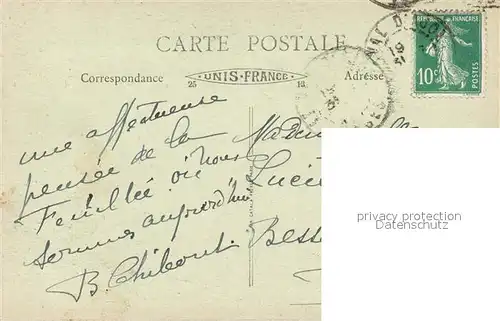 CARTE POSTALE
Correspondance
UNIS-FRANCE
25
18
Adresse
RÉPUBLIQUE FRANÇAISE
10c
POSTES
une affectueuse
pensée de la
Feuillée où nous
sommes aujourd'hui
B. Chibout
privacy protection
Datenschutz